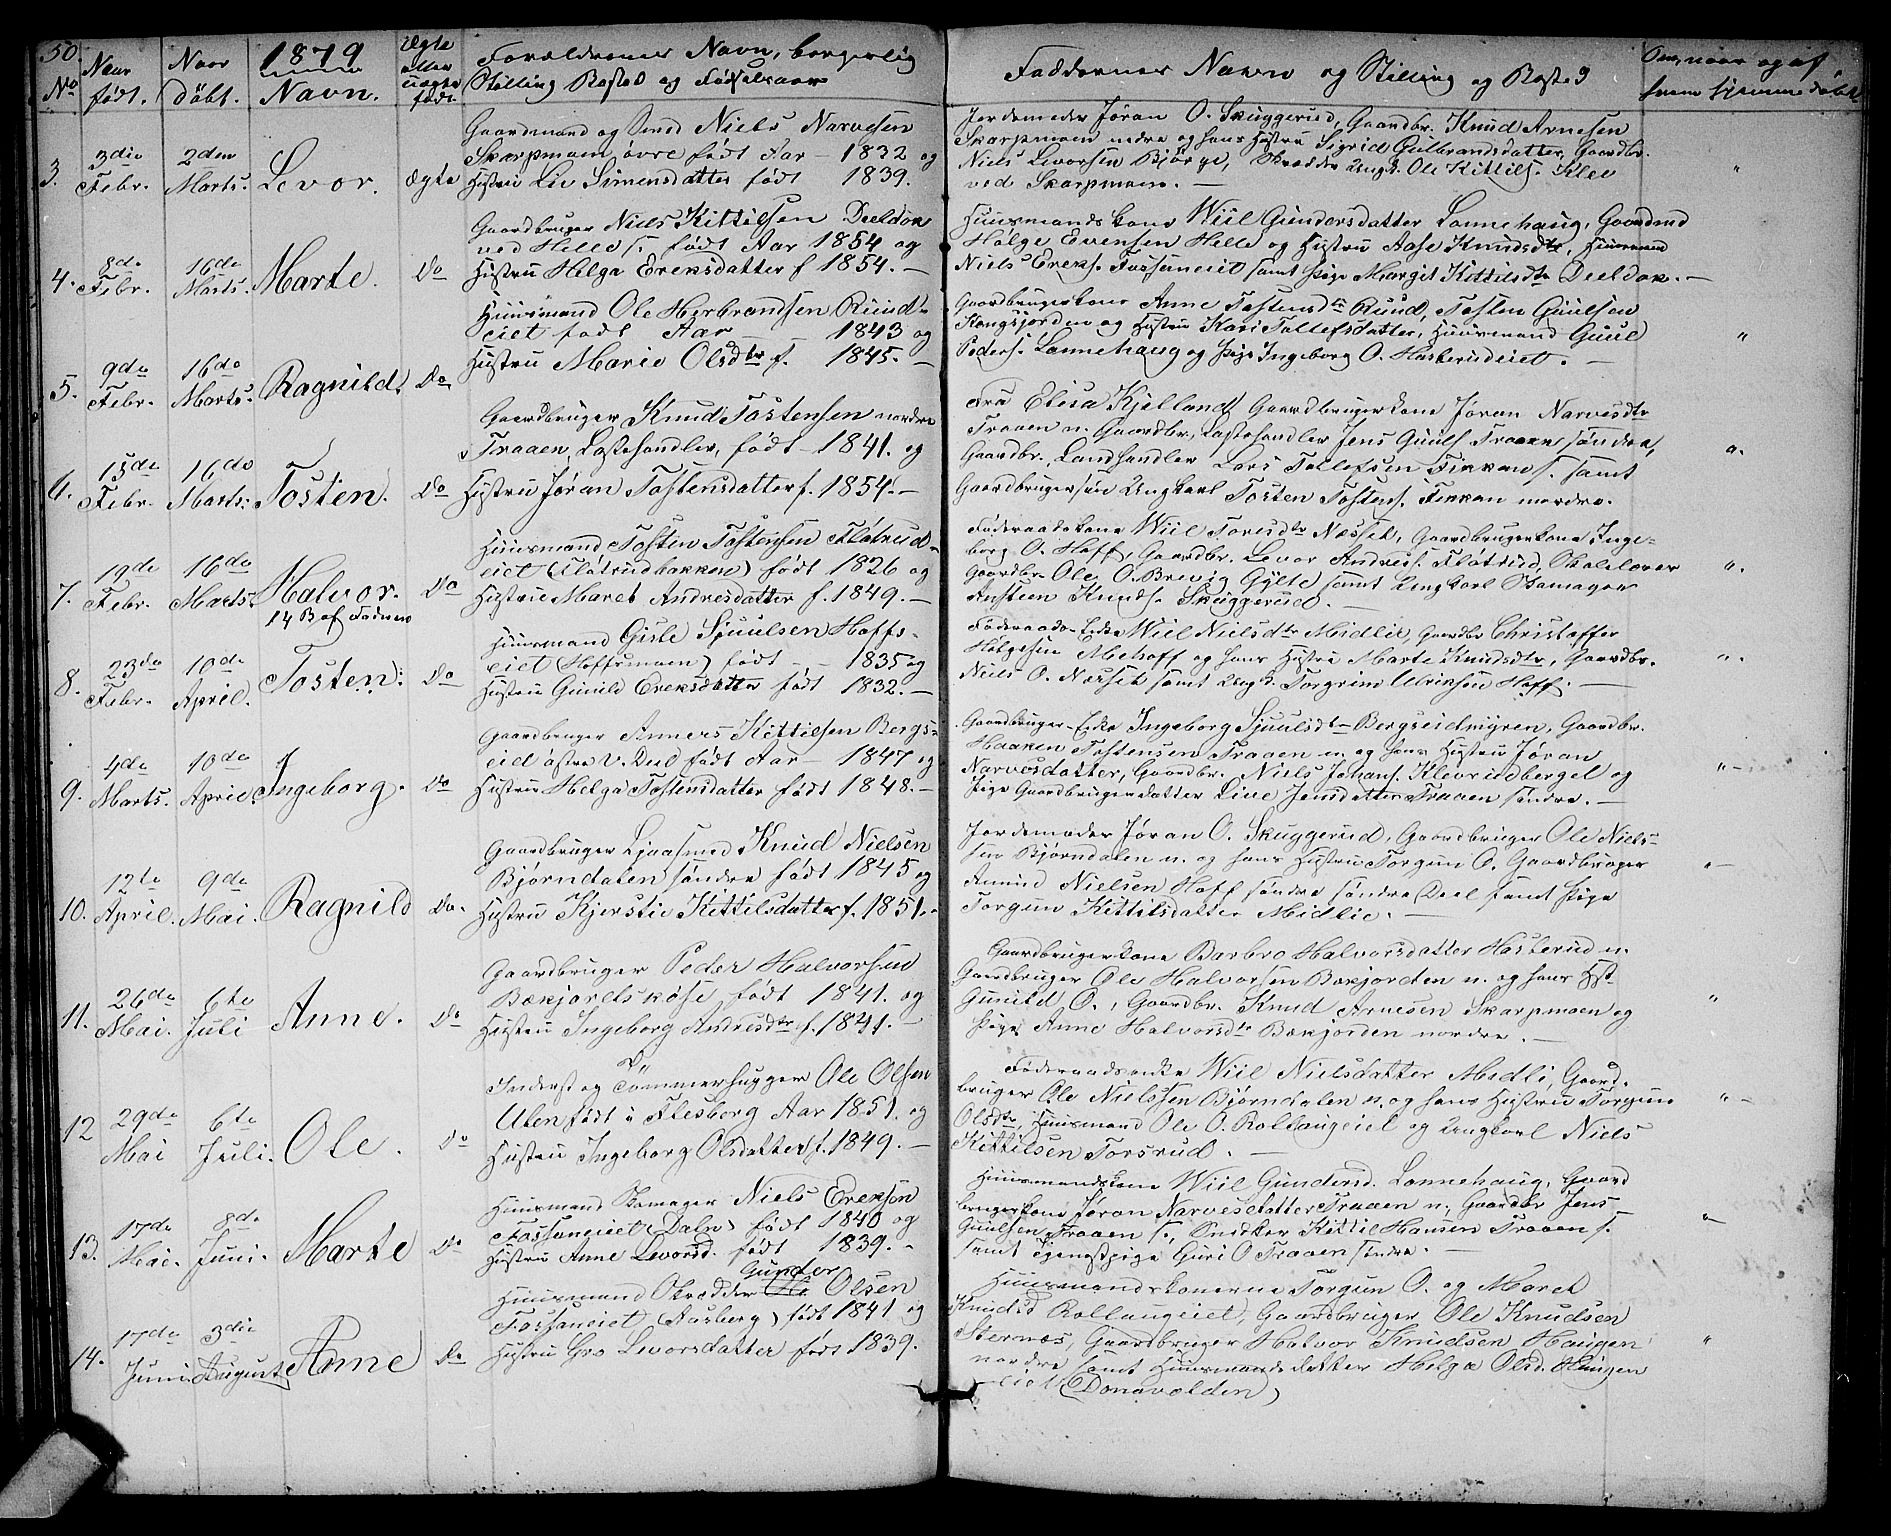 50.
No
Naar født.
Naar døbt.
1879
Navn.
Ægte eller uægte født.
Forældrenes Navn, borgerlig
Stilling Bosted og Fødselsaar
Faddernes Navn og Stilling og Bosted
Om, naar og af
hvem hjemmedøbt
3.
3die Febr.
2den Marts.
Levor.
ægte
Gaardmand og Smed Niels Narvesen
Skarpmoen øvre født Aar 1832 og
Hustru Liv Simensdatter født 1839.
Jordemoder Jøran O. Skuggerud, Gaardbr. Knud Arnesen
Skarpmoen nedre og hans Hustru Sigrid Gulbrandsdatter, Gaardbr.
Niels Levorsen Bjørge, Skrædder Ungk. Ole Kittils. Klev
ved Skarpmoen. —
"
4.
8de Febr.
16de Marts.
Marte.
Do
Gaardbruger Niels Kittilsen Deeldok
ved Helle s. født Aar 1854 og
Hustru Helga Ereksdatter f 1854. —
Huusmandskone Wiil Gundersdatter Lonnehaug, Gaardmd
Holge Evensen Helle og Hustru Aase Knudsdtr, Huusmand
Niels Ereks. Fossaneiet samt Pige Margit Kittilsdtr Deeldok. —
5.
9de Febr.
16de Marts.
Ragnild.
Do
Huusmand Ole Herbrandsen Ruud-
eiet født Aar 1843 og
Hustru Marie Olsdtr f. 1845. —
Gaardbrugerkone Anne Tostensdtr Ruud, Tosten Guulsen
Kongsjorden og Hustru Kari Tollefsdatter, Huusmand Guul
Peders. Lonnehaug og Pige Ingeborg O. Haskerudeiet. —
"
6.
15de Febr.
16de Marts.
Tosten.
Do
Gaardbruger Knud Tostensen nordre
Traaen, Lastehandler, født 1841. og
Hustru Jøran Tostensdatter f. 1854. —
Fru Elisa Kjelland, Gaardbrugerkone Jøran Narvesdtr
Traaen n. Gaardbr. Lastehandler Jens Guuls. Traaen søndre,
Gaardbr., Landhandler Lars Tollefsen Fikkan s. samt
Gaardbrugersøn Ungkarl Tosten Tostens. Fikkan nordre.
".
7.
19de Febr.
16de Marts.
Halvor.
14 B af Faderen
Do
Huusmand Tosten Tostensen Fløtrud-
eiet (Fløtrudbakken) født 1826 og
Hustru Maret Andresdatter f. 1849. —
Føderaadskone Wiil Toresdtr Næsset, Gaardbrugerkone Inge-
borg O. Hoff, Gaardbr. Levor Andress. Fløtrud, Skolelærer
Gaardbr. Ole O. Brevig Gylte samt Ungkarl Skomager
Austeen Knuds. Skuggerud. —
".
8.
23de Febr.
10de April.
Tosten.
Do
Huusmand Gisle Sjuulsen Hoffs-
eiet (Hoffsmoen) født 1835 og
Hustru Gunild Ereksdatter født 1832. —
Føderaads-Enke Wiil Nielsdtr Midlie, Gaardbr Christoffer
Holgesen Mehoff og hans Hustru Marte Knudsdtr, Gaardbr.
Niels O. Næsset samt Ungk. Torgrim Ulriksen Hoff. —
".
9.
4de Marts.
10de April.
Ingeborg.
Do
Gaardbruger Anners Kittilsen Bergs-
eid østre v. Deel født Aar 1847 og
Hustru Helga Tostensdatter født 1848. —
Gaardbruger-Enke Ingeborg Sjuulsdtr Bergseidmyren, Gaardbr.
Haaken Tostensen Traaen n. og hans Hustru Jøran
Narvesdatter, Gaardbr. Niels Johans. Klevrudbergel og
Pige Gaardbrugerdatter Live Jensdatter Traaen søndre. —
" —
10.
12te April.
9de Mai.
Ragnild
Do.
Gaardbruger Ljaasmed Knud Nielsen
Bjørndalen søndre født 1845 og
Hustru Kjerstie Kittilsdatter f. 1851. —
Jordemoder Jøran O. Skuggerud, Gaardbruger Ole Niels-
sen Bjørndalen n. og hans Hustru Torgun O. Gaardbruger
Amund Nielsen Hoff søndre søndre Deel samt Pige
Torgun Kittilsdatter Midlie. —
" —
11.
26de Mai.
6te Juli
Anne.
Do
Gaardbruger Peder Halvorsen
Bækjordskøse, født 1841. og
Hustru Ingeborg Andresdtr f. 1841. —
Gaardbrugerkone Barbro Halvorsdatter Hasterud n.
Gaardbruger Ole Halvorsen Bækjorden n. og hans Hst
Gunild O., Gaardbr. Knud Arnesen Skarpmoen og
Pige Anne Halvorsdtr Bækjorden nordre. —
"
12
29de Mai
6te Juli.
Ole.
Do
Inderst og Tømmerhugger Ole Olsen
Ulen født i Flesberg Aar 1851. og
Hustru Ingeborg Olsdatter f. 1849. —
Føderaadsenke Wiil Nielsdatter Midli, Gaard-
bruger Ole Nielssen Bjørndalen n. og hans Hustru Torgun
Olsdtr, Huusmand Ole O. Rollaugeiet og Ungkarl Niels
Kittilsen Torsrud. —
" —
13.
17de Mai.
8de Juni.
Marte
Do
Huusmand Skomager Niels Ereksen
Fossaneiet (Dalen) født 1840 og
Hustru Anne Levorsd. født 1839. —
Huusmandskone Wiil Gundersd. Lonnehaug, Gaard
brugerkone Jøran Narvesdatter Traaen n., Gaardbr Jens
Guulsen Traaen s., Snedker Kittil Hansen Traaen s.
samt Tjenestpige Guri O Traaen søndre. —
" —
14.
17de Juni
3die August
Anne
Do
Gunder
Huusmand Skrædder Olsen
Fossaneiet (Aasberg) født 1841 og
Hustru Gro Levorsdatter født 1839.
Huusmandskonerne Torgun O. og Maret
Knudsd Rollaugeiet, Gaardbruger Ole Knudsen
Sternes, Gaardbruger Halvor Knudsen Haugen
nordre samt Huusmandsdatter Helga Olsd. Haugen
eiet (Donavolden)
"